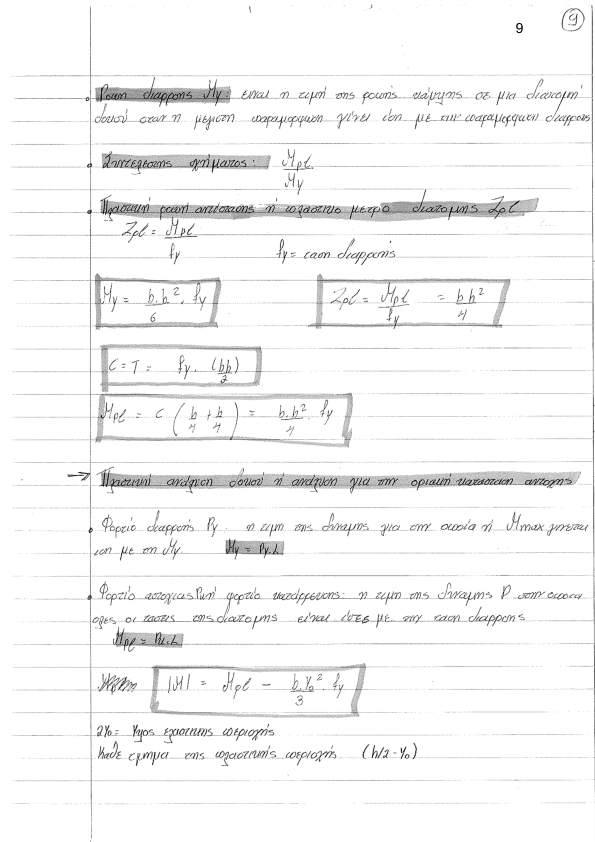 9
9
• Ροπή διαρροής My: είναι η τιμή της ροπής κάμψης σε μια διατομή
δοκού όταν η μέγιστη παραμόρφωση γίνει ίση με την παραμόρφωση διαρροής
• Συντελεστής σχήματος: Mpl / My
• Πλαστική ροπή αντίστασης ή πλαστικο μετρο διατομης Zpl
Zpl = Mpl / fy fy = ταση διαρροής
My = b.h² / 6 . fy Zpl = Mpl / fy = bh² / 4
C = T = fy . (bh / 2)
Mpl = C (h/4 + h/4) = b.h² / 4 . fy
→ Πλαστική ανάλυση δοκού ή ανάλυση για την οριακή κατασταση αντοχης
• Φορτίο διαρροής Py. η τιμη της δυναμης για την οποία η Mmax γινεται
ιση με τη My. My = Py.L
• Φορτίο αστοχιας Pu ή φορτίο κατάρρευσης: η τιμη της δυναμης P στην οποια
ολες οι τασεις της διατομης είναι ίσες με την ταση διαρροης
Mpl = Pu.L
|M| = Mpl − b.y₀² / 3 . fy
2y₀ = Υψος ελαστικης περιοχής
Καθε τμημα της πλαστικής περιοχής (h/2 - y₀)